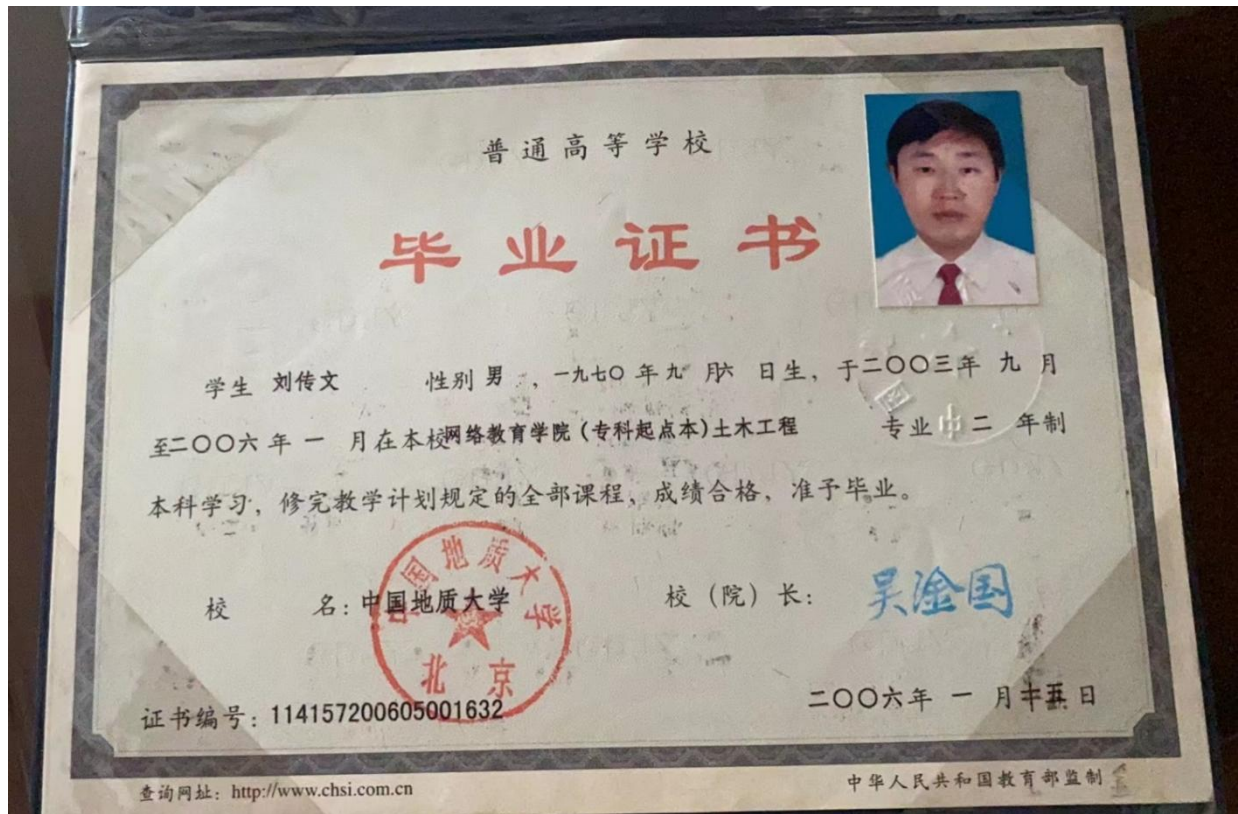 普通高等学校
毕业证书
学生 刘传文 性别 男 ,一九七〇年九月六日生,于二〇〇三年九月
至二〇〇六年一月在本校网络教育学院(专科起点本)土木工程 专业 二 年制
本科学习,修完教学计划规定的全部课程,成绩合格,准予毕业。
校 名:中国地质大学
中国地质大学
北京
校(院)长: 吴淦国
证书编号:114157200605001632
二〇〇六年一月十五日
查询网址:http://www.chsi.com.cn
中华人民共和国教育部监制